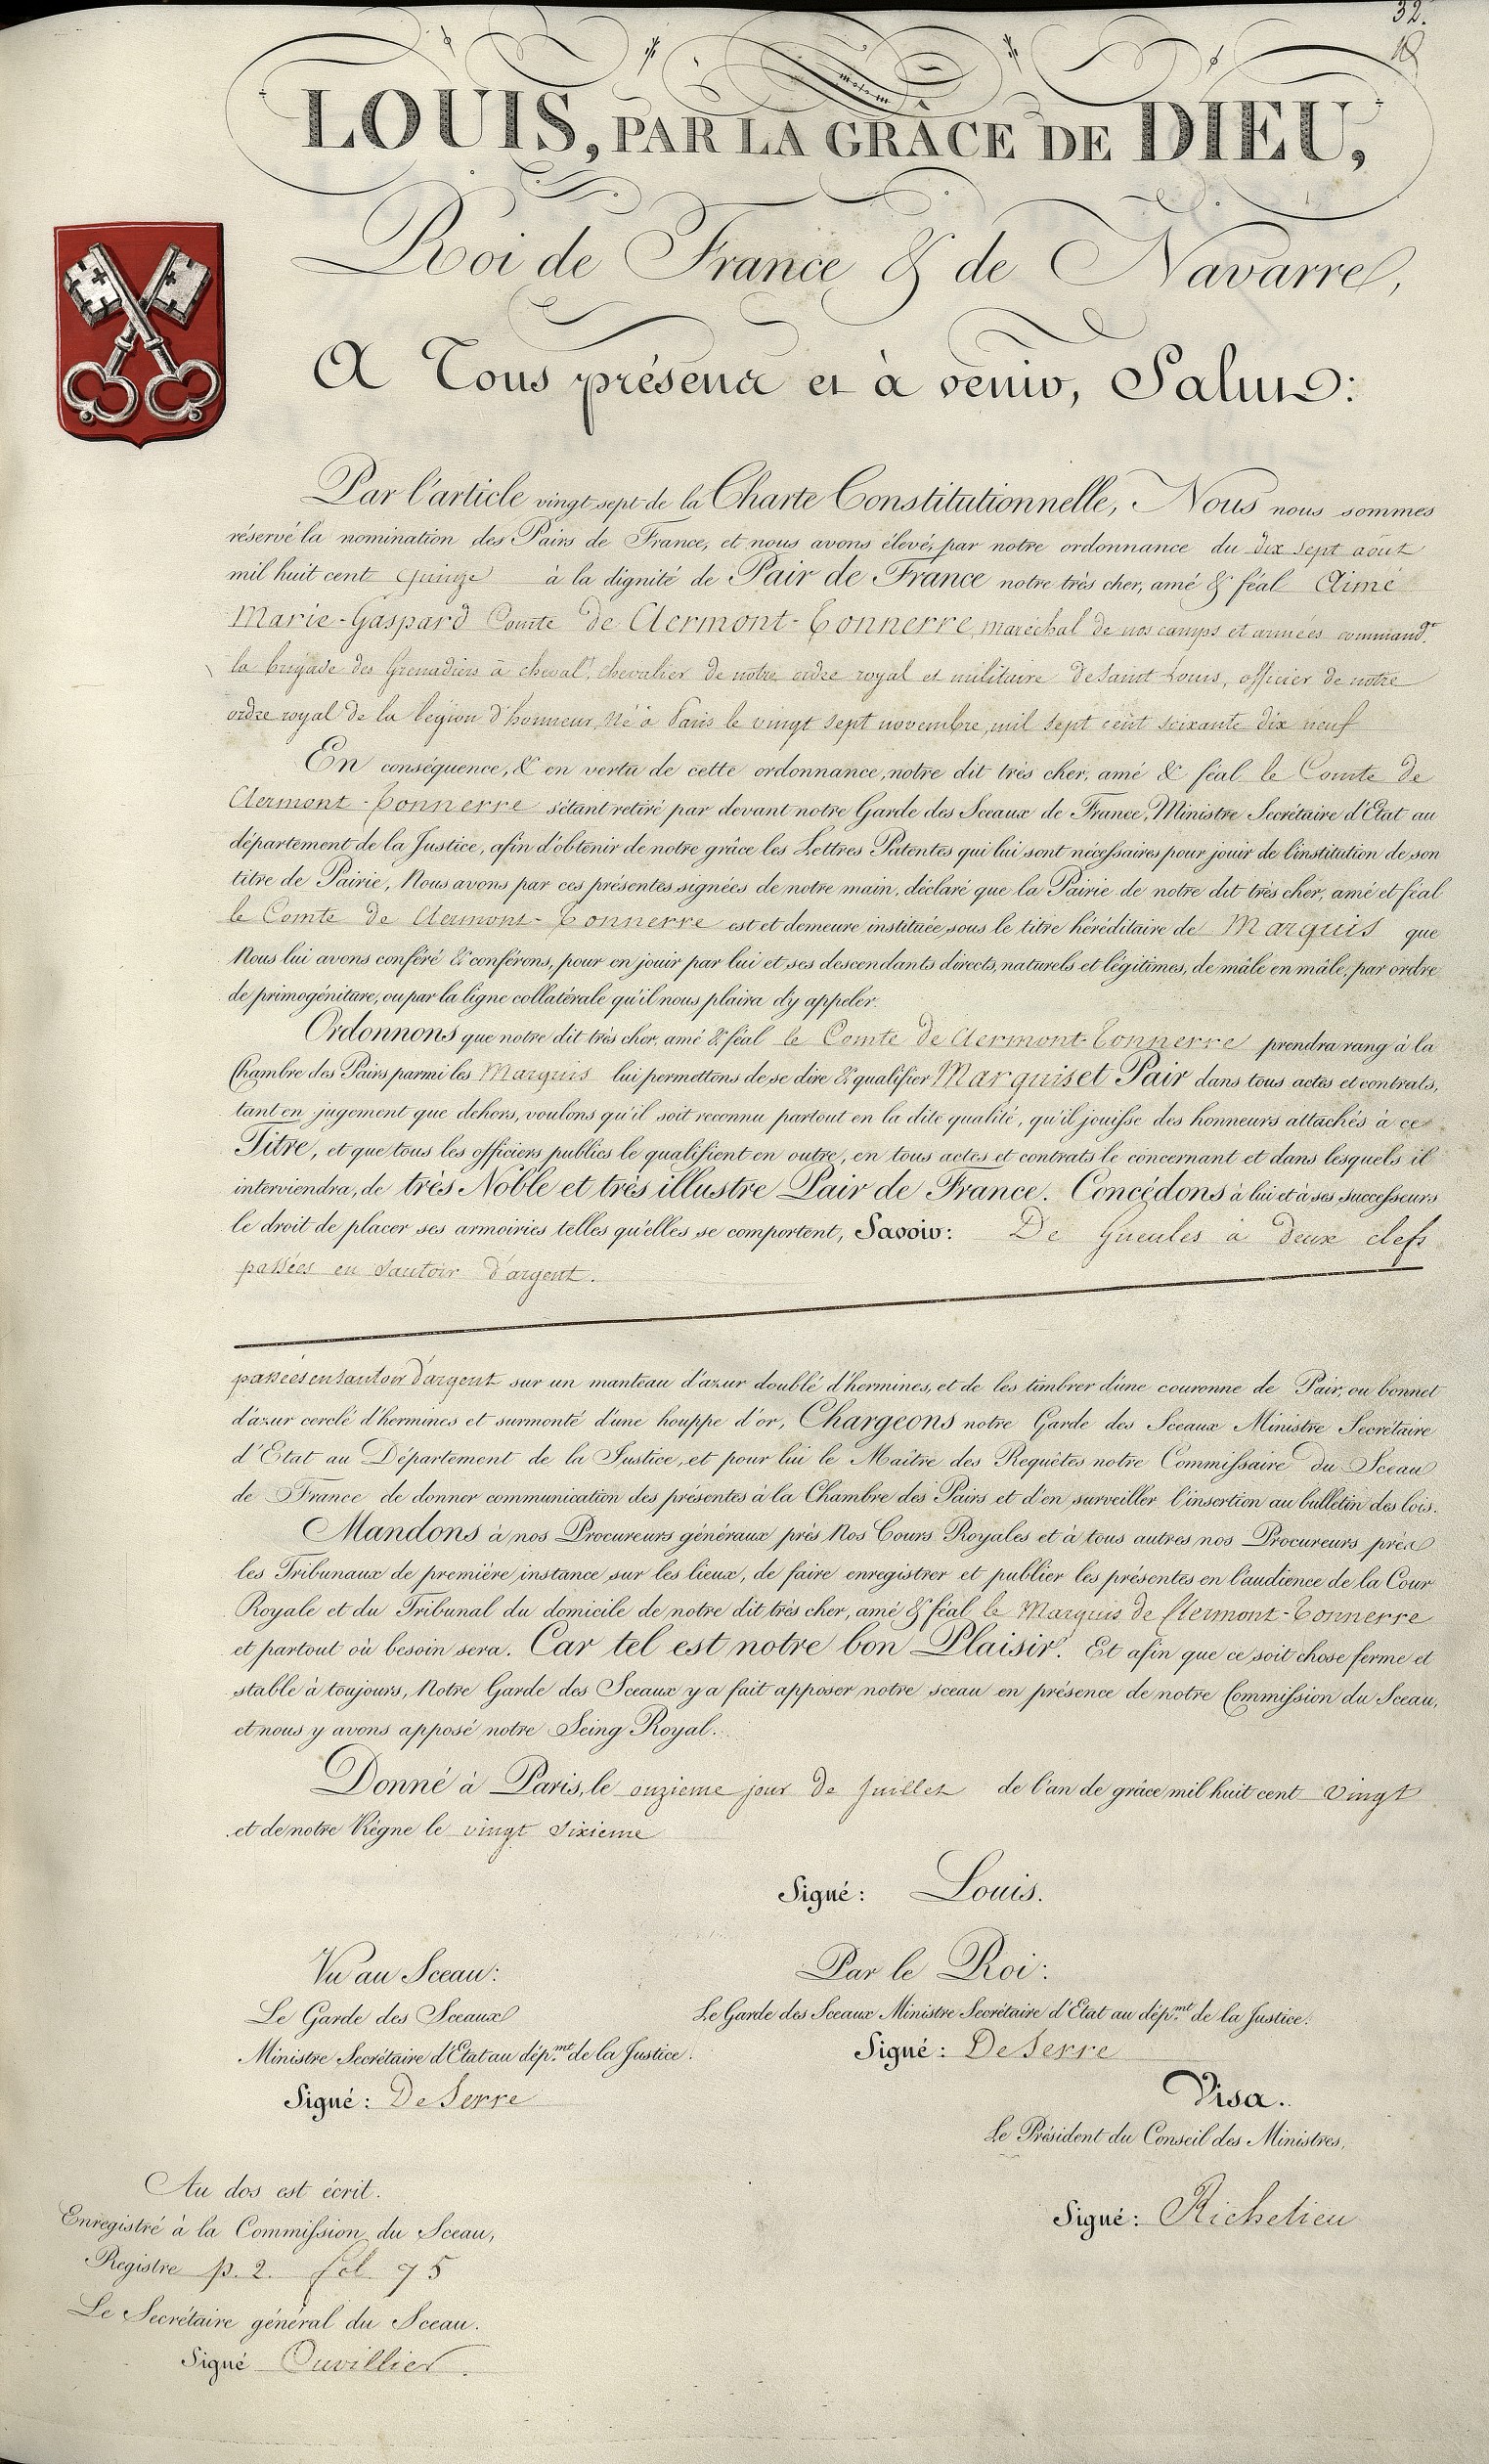 32.
18
LOUIS, PAR LA GRÂCE DE DIEU,
Roi de France & de Navarre,
A Tous présens et à venir, Salut:
Par l'article vingt sept de la Charte Constitutionnelle, Nous nous sommes
réservé la nomination des Pairs de France, et nous avons élevé, par notre ordonnance du dix sept août
mil huit cent quinze à la dignité de Pair de France notre très cher, amé & féal Aimé
Marie-Gaspard Comte de Clermont-Tonnerre, maréchal de nos camps et armées command.t
la brigade des Grenadiers à cheval, chevalier de notre ordre royal et militaire de Saint Louis, officier de notre
ordre royal de la légion d'honneur, Né à Paris le vingt sept novembre, mil sept cent soixante dix neuf
En conséquence, & en vertu de cette ordonnance, notre dit très cher, amé & féal le Comte de
Clermont-Tonnerre s'étant retiré par devant notre Garde des Sceaux de France, Ministre Secrétaire d'Etat au
département de la Justice, afin d'obtenir de notre grâce les Lettres Patentes qui lui sont nécessaires pour jouir de l'institution de son
titre de Pairie, Nous avons par ces présentes signées de notre main, déclaré que la Pairie de notre dit très cher, amé et féal
le Comte de Clermont-Tonnerre est et demeure instituée sous le titre héréditaire de Marquis que
Nous lui avons conféré & conférons, pour en jouir par lui et ses descendants directs, naturels et légitimes, de mâle en mâle, par ordre
de primogéniture, ou par la ligne collatérale qu'il nous plaira d'y appeler.
Ordonnons que notre dit très cher, amé & féal le Comte de Clermont-Tonnerre prendra rang à la
Chambre des Pairs parmi les Marquis lui permettons de se dire & qualifier Marquis et Pair dans tous actes et contrats,
tant en jugement que dehors, voulons qu'il soit reconnu partout en la dite qualité, qu'il jouisse des honneurs attachés à ce
Titre, et que tous les officiers publics le qualifient en outre, en tous actes et contrats le concernant et dans lesquels il
interviendra, de très Noble et très illustre Pair de France. Concédons à lui et à ses successeurs
le droit de placer ses armoiries telles qu'elles se comportent, Savoir: De Gueules à deux clefs
passées en sautoir d'argent.
passées en sautoir d'argent sur un manteau d'azur doublé d'hermines, et de les timbrer d'une couronne de Pair, ou bonnet
d'azur cerclé d'hermines et surmonté d'une houppe d'or, Chargeons notre Garde des Sceaux Ministre Secrétaire
d'Etat au Département de la Justice, et pour lui le Maître des Requêtes notre Commissaire du Sceau
de France de donner communication des présentes à la Chambre des Pairs et d'en surveiller l'insertion au bulletin des lois.
Mandons à nos Procureurs généraux près Nos Cours Royales et à tous autres nos Procureurs près
les Tribunaux de première instance sur les lieux, de faire enregistrer et publier les présentes en l'audience de la Cour
Royale et du Tribunal du domicile de notre dit très cher, amé & féal le Marquis de Clermont-Tonnerre
et partout où besoin sera. Car tel est notre bon Plaisir. Et afin que ce soit chose ferme et
stable à toujours, Notre Garde des Sceaux y a fait apposer notre sceau en présence de notre Commission du Sceau,
et nous y avons apposé notre Seing Royal.
Donné à Paris, le onzieme jour de Juillet de l'an de grâce mil huit cent vingt
et de notre Règne le vingt sixieme
Signé: Louis.
Vu au Sceau:
Le Garde des Sceaux
Ministre Secrétaire d'Etat au dép.mt de la Justice.
Signé: De Serre
Par le Roi:
Le Garde des Sceaux Ministre Secrétaire d'Etat au dép.mt de la Justice.
Signé: De Serre
Visa.
Le Président du Conseil des Ministres,
Signé: Richelieu
Au dos est écrit.
Enregistré à la Commission du Sceau,
Registre p. 2. fol. 75
Le Secrétaire général du Sceau.
Signé Cuvillier.